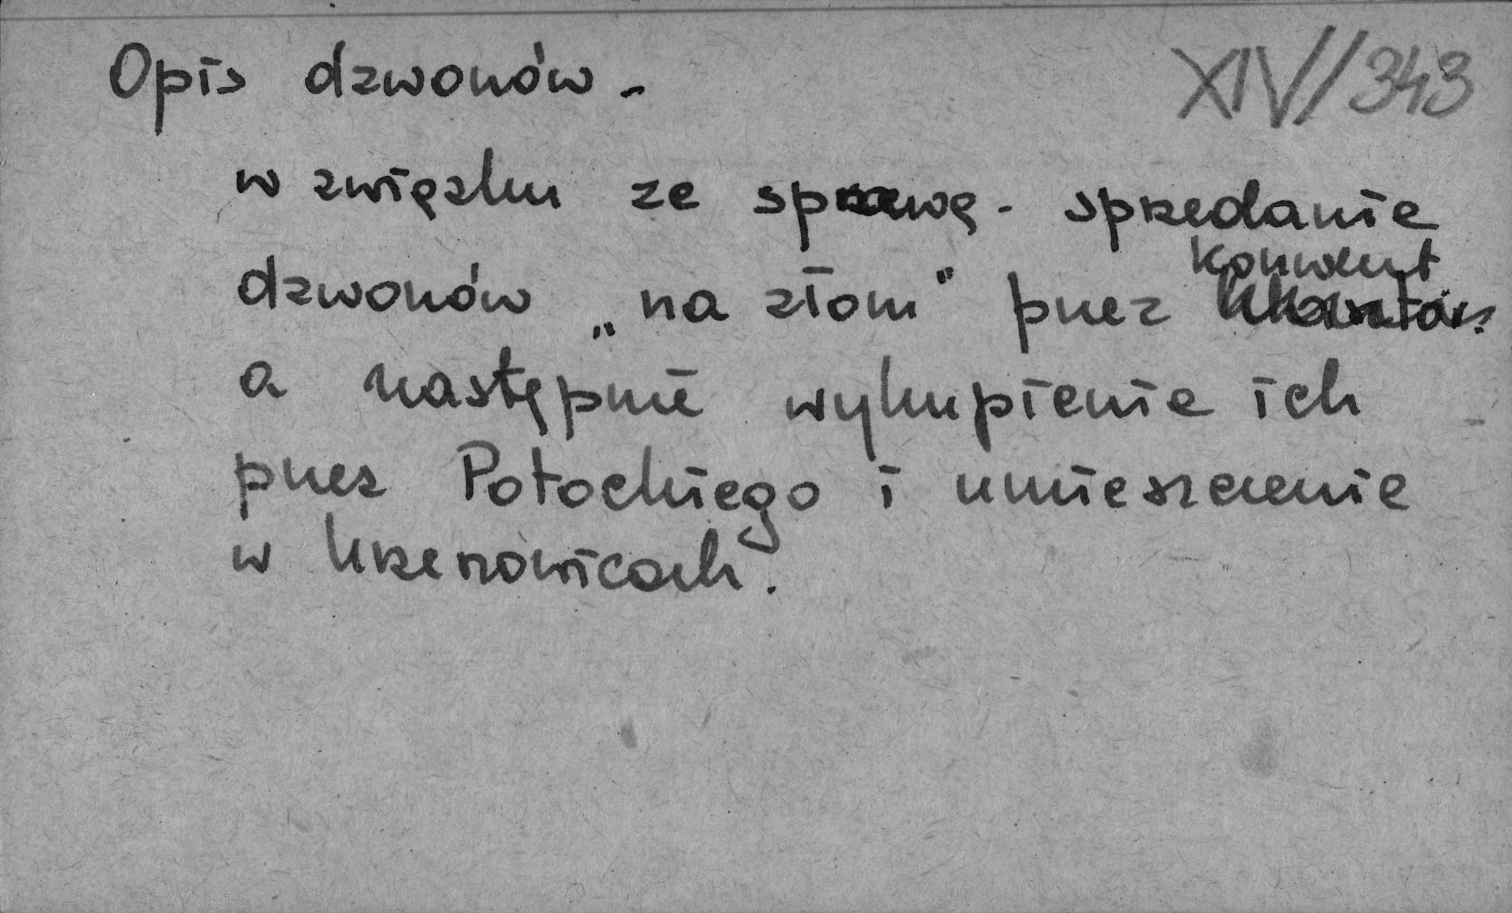 Opis dzwonów - XIV/343
w związku ze sprawą - sprzedanie
konwent
dzwonów „na złom” przez
a następnie wykupienie ich
przez Potockiego i umieszczenie
w Krzeszowicach.